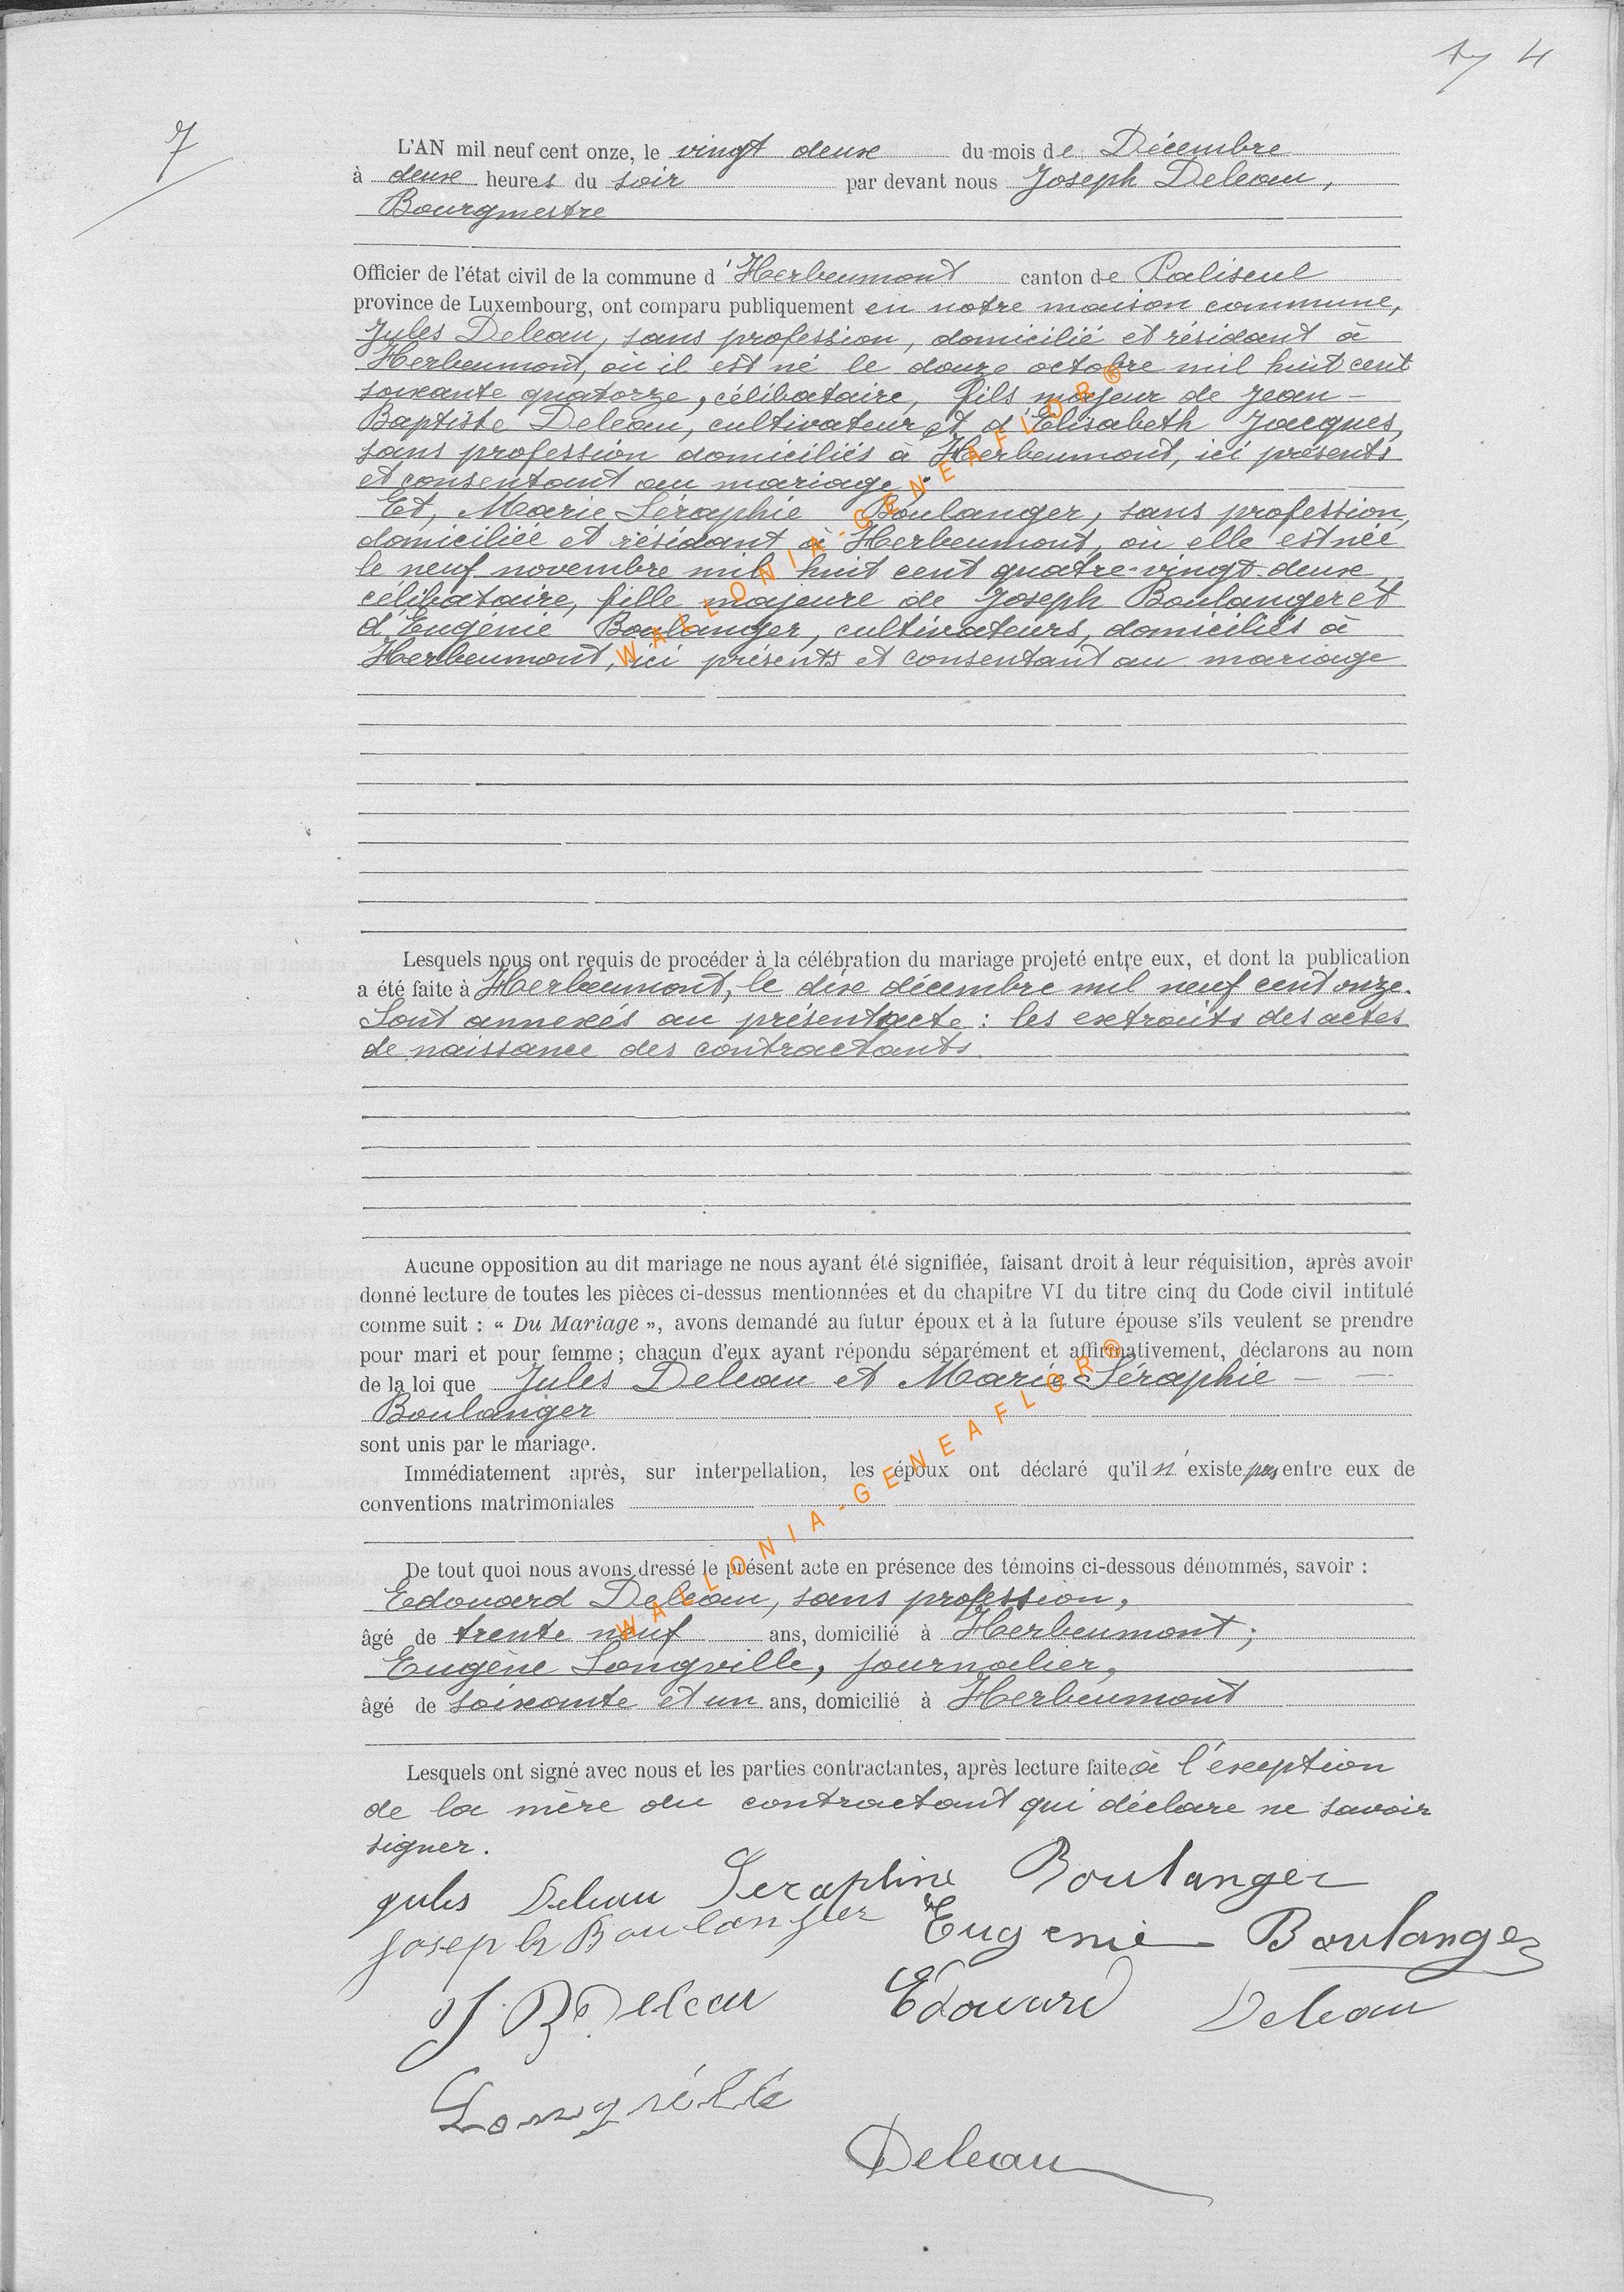 4
7
L'AN mil neuf cent onze, le vingt deux du mois de Décembre
à deux heures du soir par devant nous Joseph Deleau,
Bourgmestre
Officier de l'état civil de la commune d'Herbeumont canton de Paliseul
province de Luxembourg, ont comparu publiquement en notre maison commune,
Jules Deleau, sans profession, domicilié et résidant à
Herbeumont, où il est né le douze octobre mil huit cent
soixante quatorze, célibataire, fils majeur de Jean-
Baptiste Deleau, cultivateur et d'Elisabeth Jacques,
sans profession domiciliés à Herbeumont, ici présents
et consentant au mariage.
Et, Marie Séraphie Boulanger, sans profession,
domiciliée et résidant à Herbeumont, où elle est née
le neuf novembre mil huit cent quatre-vingt-deux,
célibataire, fille majeure de Joseph Boulanger et
d'Eugénie Boulanger, cultivateurs, domiciliés à
Herbeumont, ici présents et consentant au mariage
WALLONIA-GENEAFLOR®
Lesquels nous ont requis de procéder à la célébration du mariage projeté entre eux, et dont la publication
a été faite à Herbeumont, le dix décembre mil neuf cent onze.
Sont annexés au présent acte : les extraits des actes
de naissance des contractants.
Aucune opposition au dit mariage ne nous ayant été signifiée, faisant droit à leur réquisition, après avoir
donné lecture de toutes les pièces ci-dessus mentionnées et du chapitre VI du titre cinq du Code civil intitulé
comme suit : « Du Mariage », avons demandé au futur époux et à la future épouse s'ils veulent se prendre
pour mari et pour femme ; chacun d'eux ayant répondu séparément et affirmativement, déclarons au nom
de la loi que Jules Deleau et Marie-Séraphie -
Boulanger
sont unis par le mariage.
Immédiatement après, sur interpellation, les époux ont déclaré qu'il n'existe pas entre eux de
conventions matrimoniales
WALLONIA-GENEAFLOR®
De tout quoi nous avons dressé le présent acte en présence des témoins ci-dessous dénommés, savoir :
Edouard Deleau, sans profession,
âgé de trente neuf ans, domicilié à Herbeumont ;
Eugène Longville, journalier,
âgé de soixante et un ans, domicilié à Herbeumont
Lesquels ont signé avec nous et les parties contractantes, après lecture faite à l'exeption
de la mère du contractant qui déclare ne savoir
signer.
Jules Deleau Seraphine Boulanger
Joseph Boulanger Eugenie Boulanger
J B Deleau Edouard Deleau
Longville
Deleau